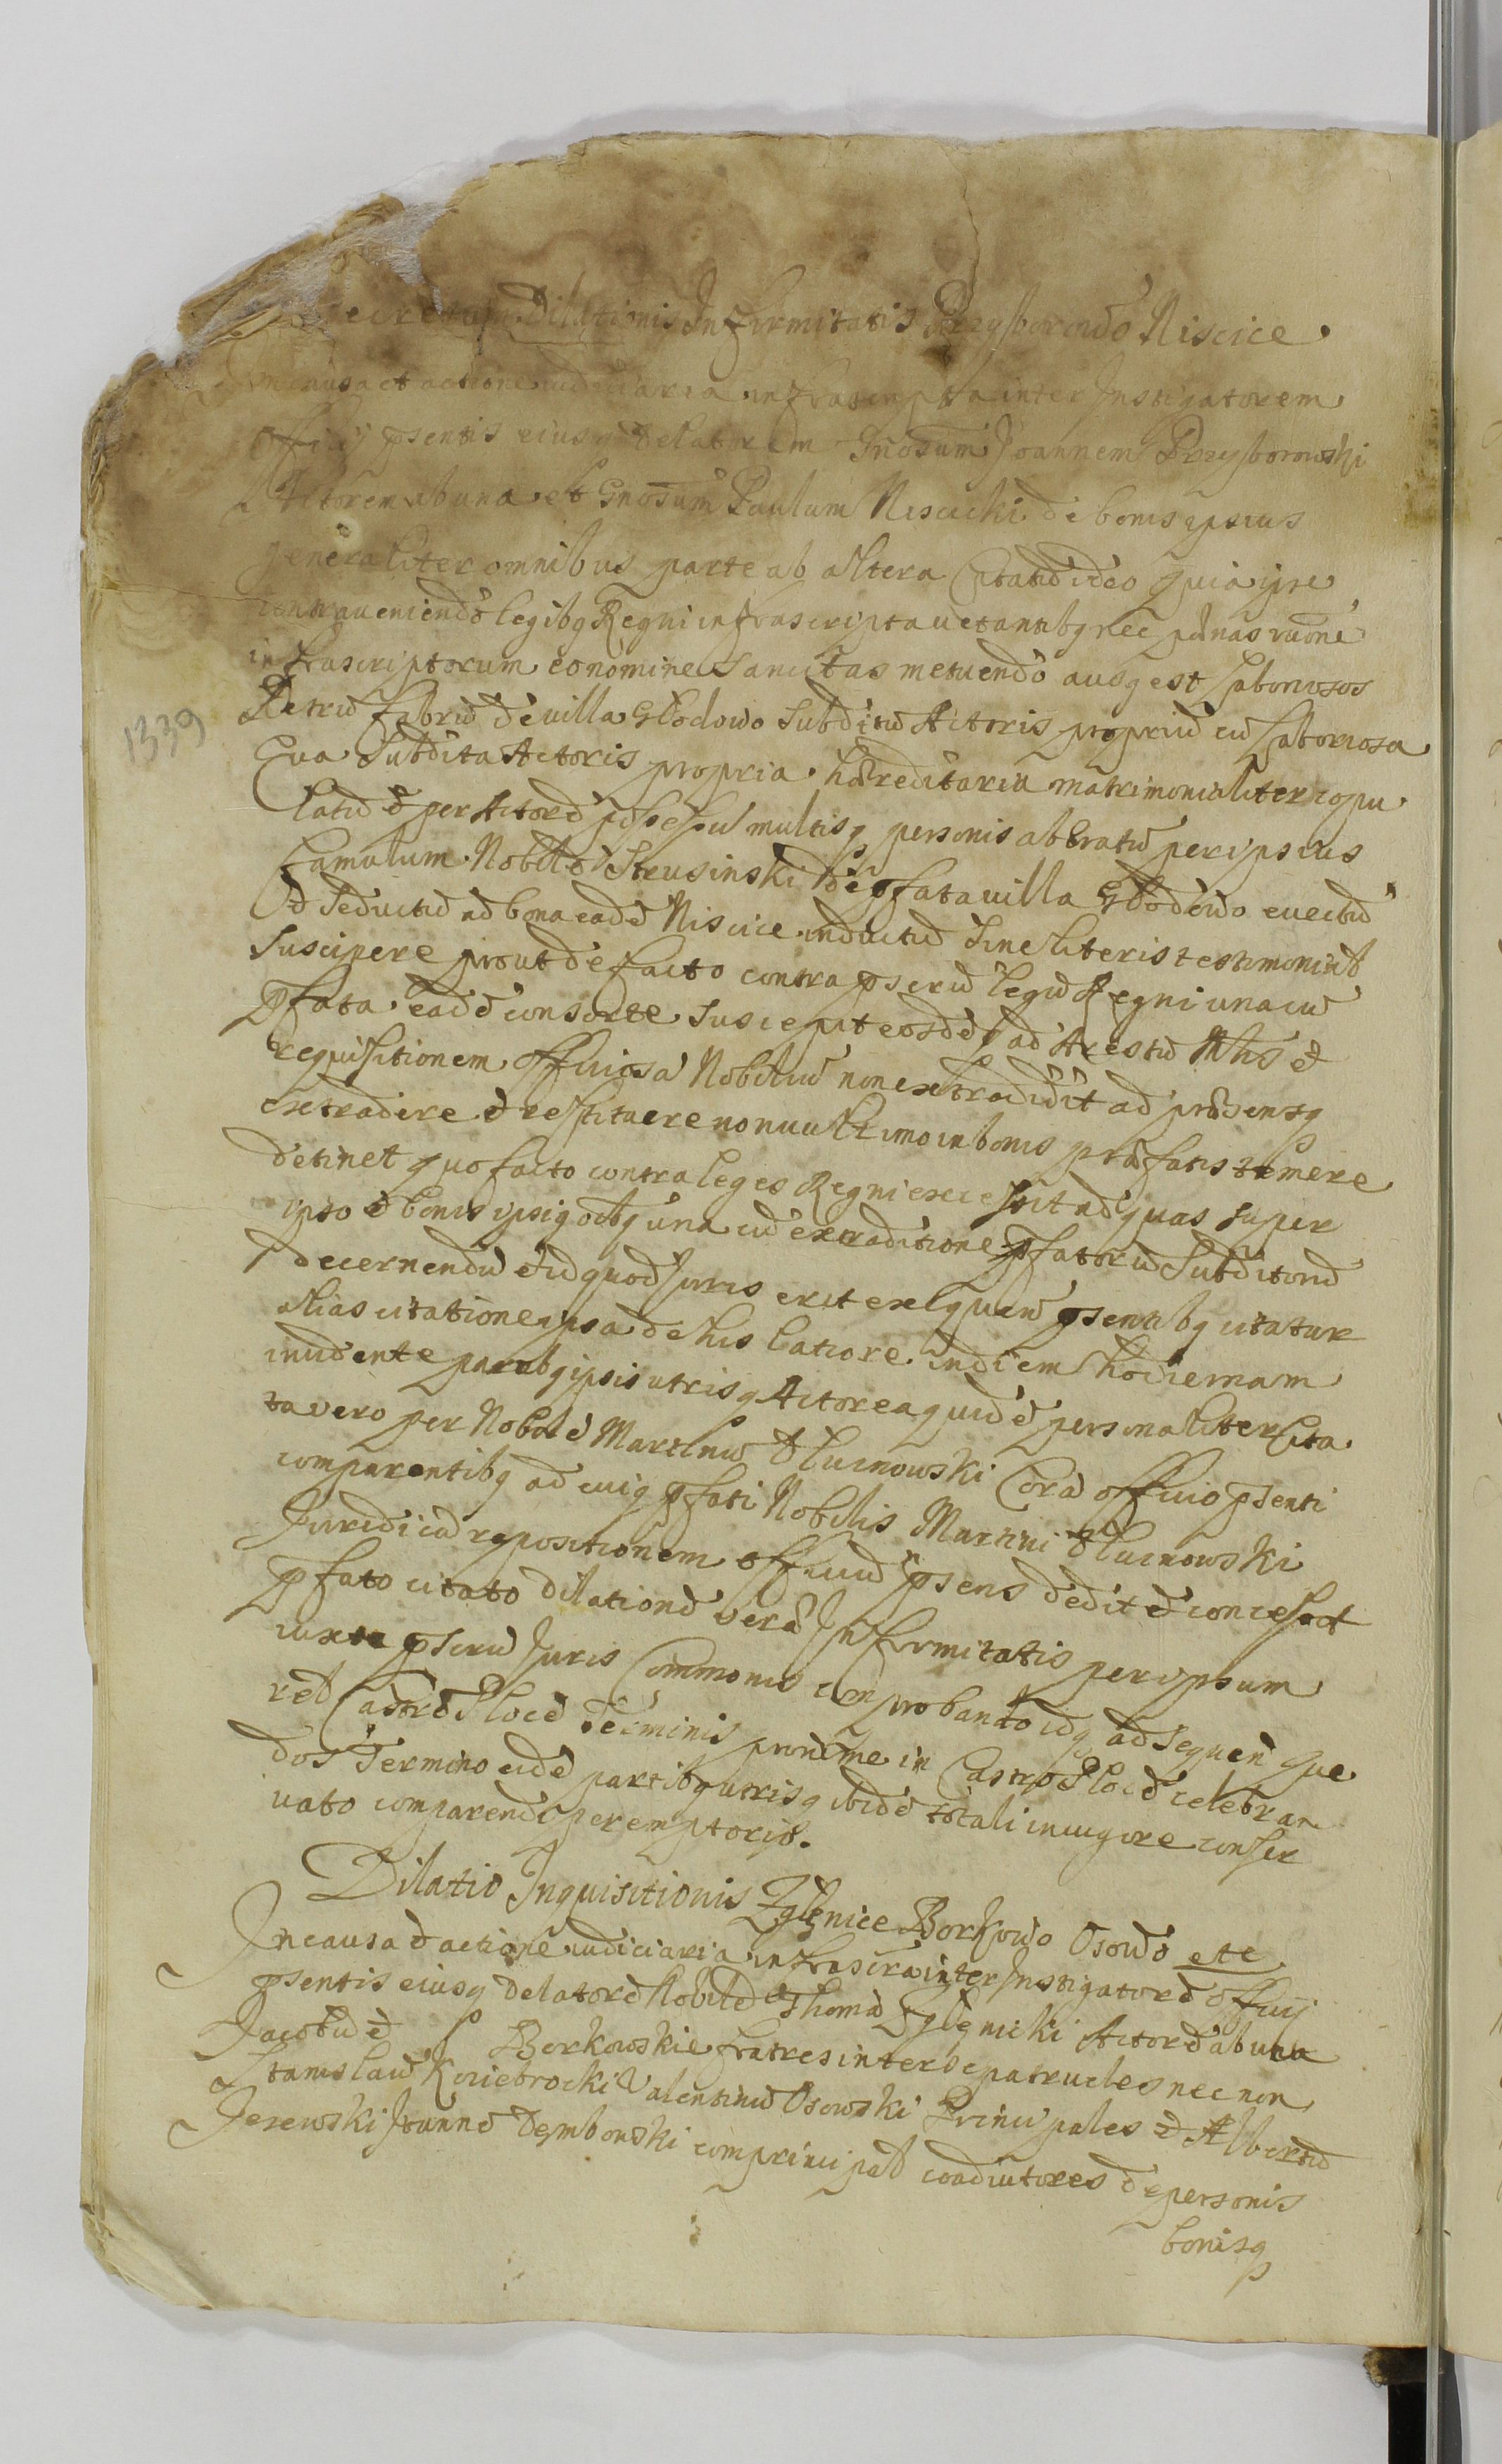 Decretum Dilationis Infirmitatis Przyborowo Niscice
In causa et actione iudiciaria infrascripta inter Instigatorem
Officij psentis eiusq delatorem Gnosum Joannem Przyborowski
Actorem ab una et Gnosum Paulum Niscicki de bonis ipsius
generaliter omnibus parte ab altera Citatu ideo quia ipse
contraueniendo legibq Regni infrascripta uetantibq nec pænas raone
infrascriptorum eo nomine sancitas metuendo ausq est Laboriosos
Petru Fabru de villa Głodowo Subditu Actoris propriu cu Laboriosa
Eua Subdita Actoris propria hæreditaria matrimonialiter copu
latu et per Actore possessu multisq personis ablatu per ipsius
famulum Nobile Strusinski de pfata villa Głodowo euectu
et seductu ad bona eade Niscice inductu sine literis testimonial
suscipere prout de facto contra pscru legu Regni una cu
pfata eade consorte suscepit eosdeq ad Arestu Mtis et
requisitionem officiosa Nobiliu non extradidit ad præsensq
extradere et restituere non uult imo in bonis præfatis temere
detinet quo facto contra leges Regni excessit ad quas super
ipso et bonis ipsiq octbq una cu extraditione pfatoru Subditoru
decernendu et id quod Juris erit exequen psentibq citatur
alias citatione ipsa de his latiore in diem hodiernam
incidente partibq ipsis utrisq Actorea quide personaliter Cita
ta vero per Nobile Martinu Tlucnowski Cora officio psenti
comparentibq ad cuiq pfati Nobilis Martini Tlucnowski
Juridica repositionem officiu psens dedit et concessit
pfato citato dilatione veræ Infirmitatis per ipsum
iuxta pscru Juris Communis comprobando idq ad sequen que
rel Castre Ploce Terminis proxime in Castro Ploce celebran
dos Termino eide partibq utrisq ibide totali in uigore conser
uato comparendi peremptorio.
Dilatio Inquisitionis Zglenice Borkowo Osowo etc
In causa et actione iudiciaria infrascra inter Instigatore officij
psentis eiusq delatore Nobile Thoma Zglenicki Actore ab una
Jacobu et Borkowskie fratres inter se patrueles nec non
Stanislau Koziebrocki Valentinu Osowski Principales et Albertu
Jezewski Joanne Dembowski comprincipal coadiutores de personis
bonisq
1339